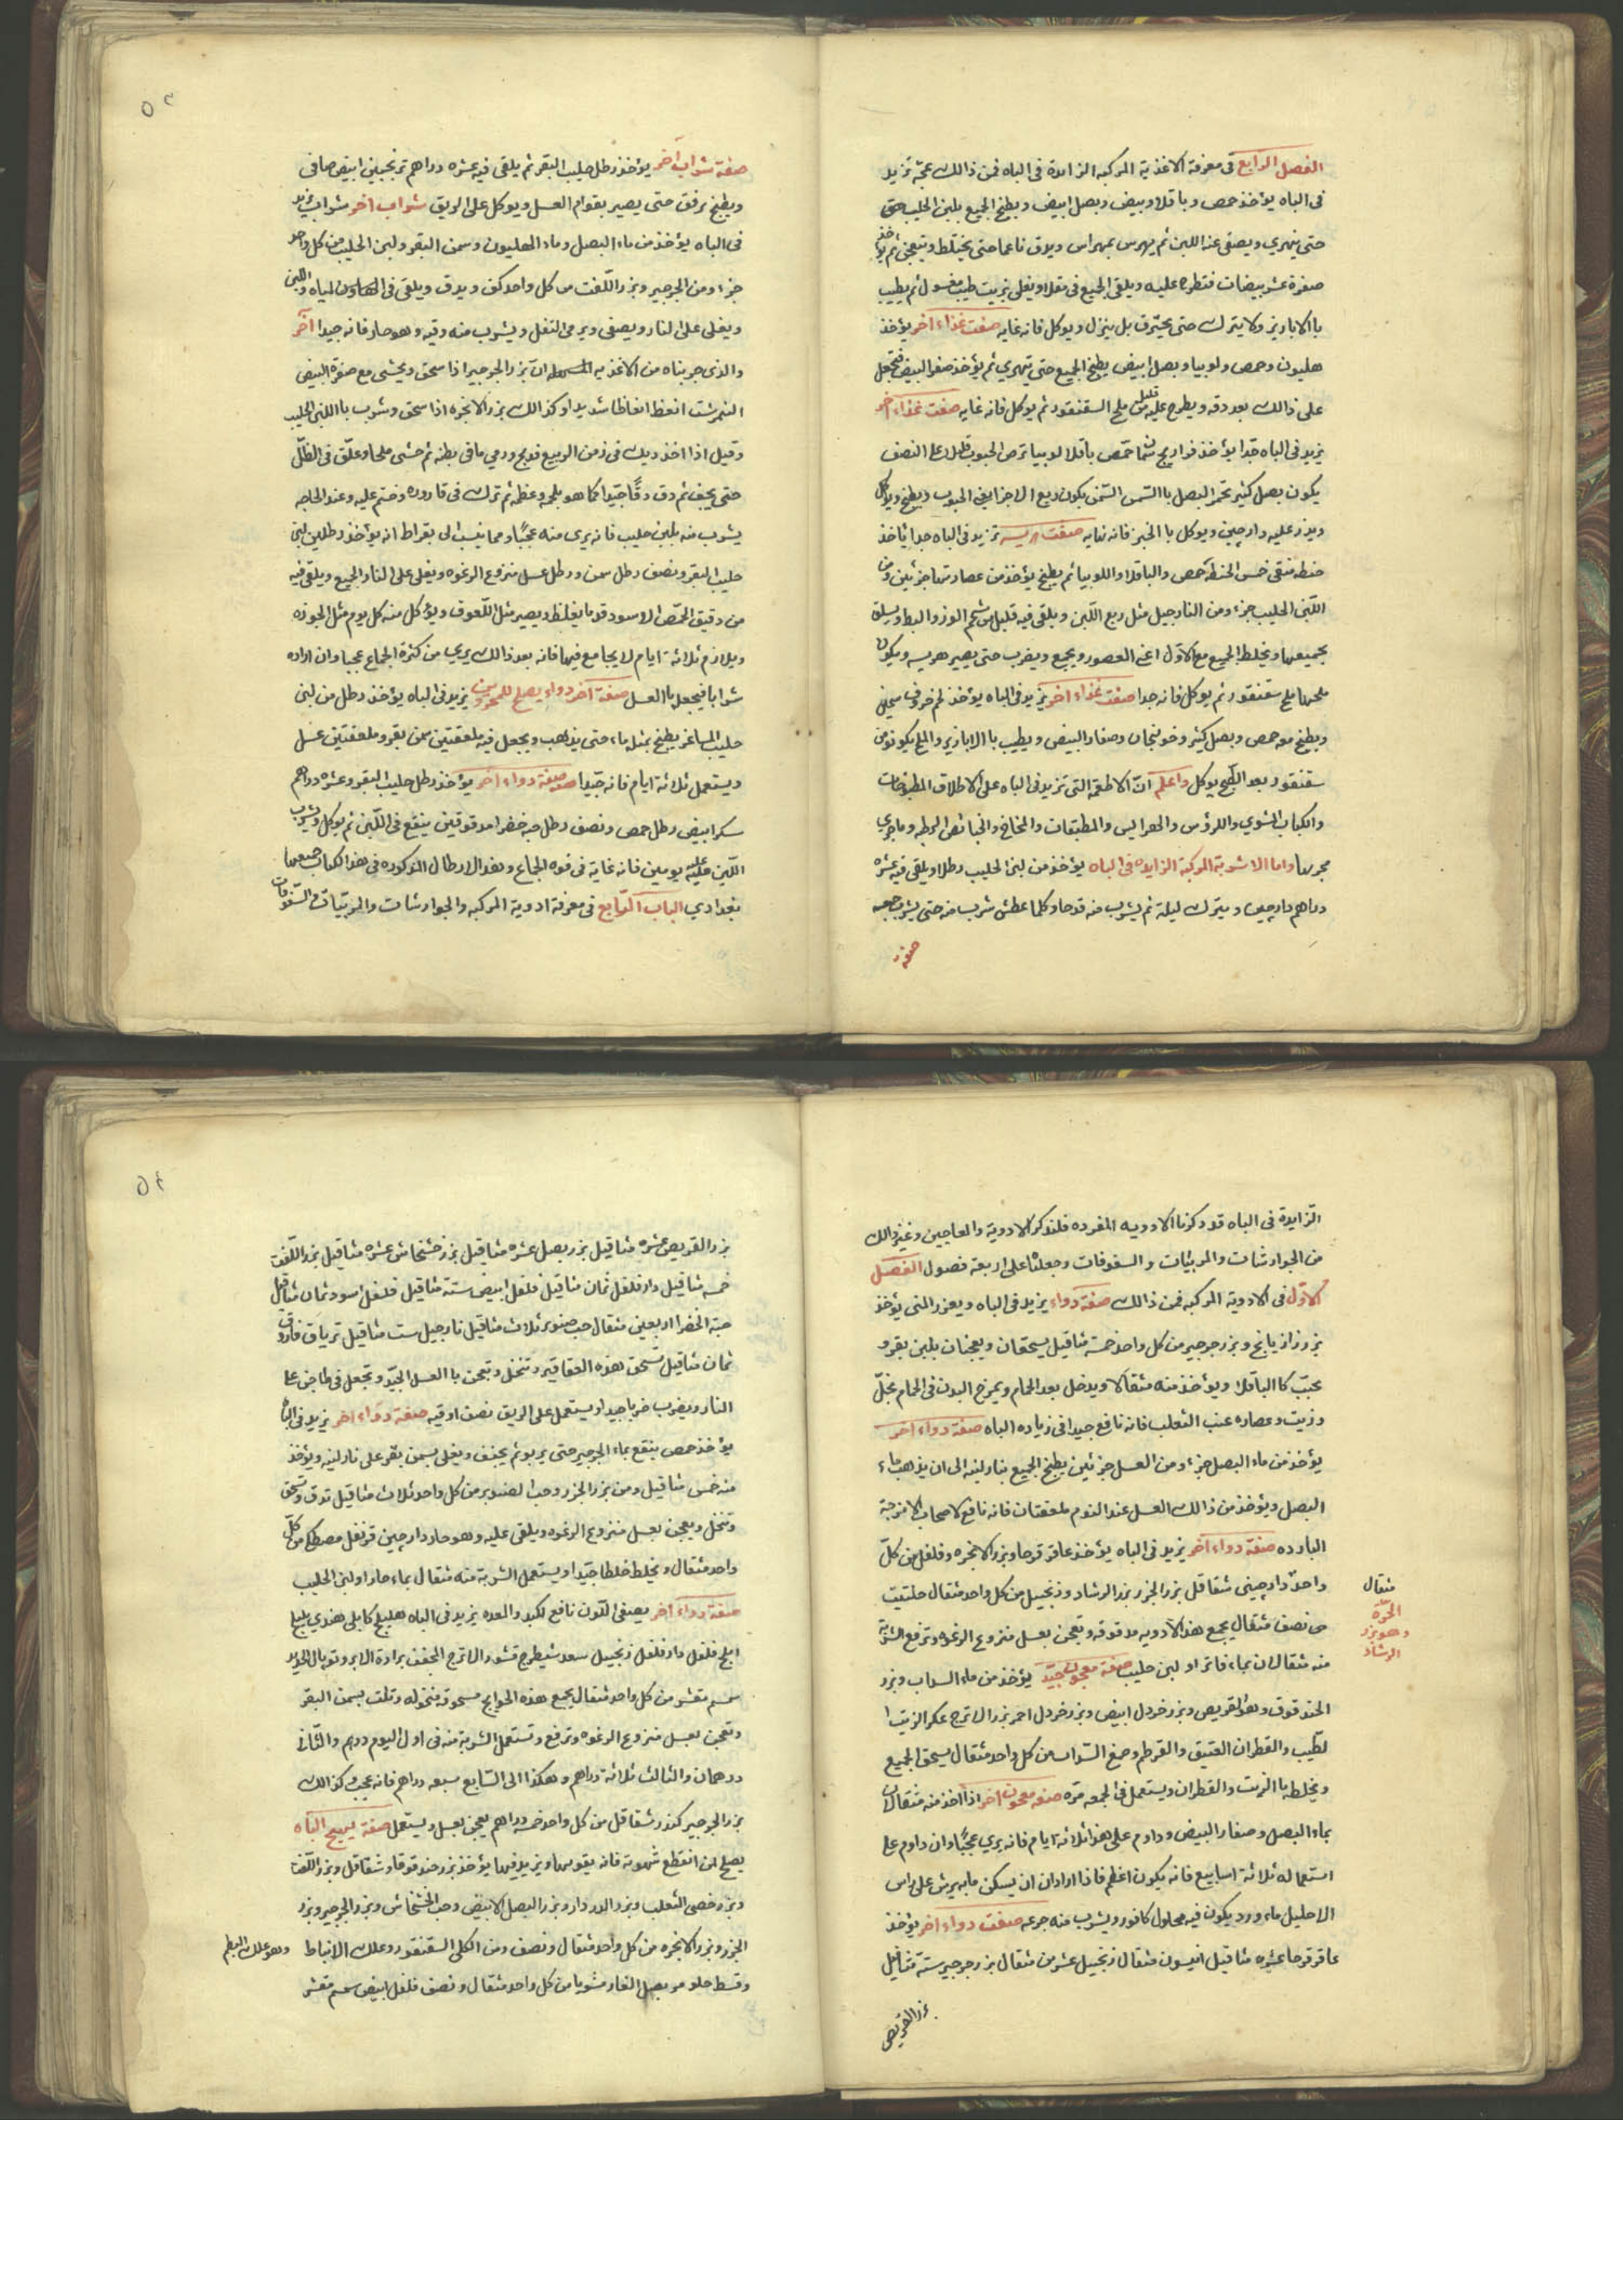 الفصل الرابع فى معرفة الاغذية المركبه الزايدة فى الباه فمن ذالك عجّة تزيد
فى الباه يؤخذ حمص وباقلا وبيض وبصل ابيض ويطبخ الجميع بلبن الحليب حتى
حتى ينهري ويصفى عنه اللبن ثم يهرس بمهراس ويدق ناعما حتى يختلط ويتعجن ثم يؤخذ
صفرة عشر بيضات فتطرح عليه ويلقى الجميع فى مقلا ويغلى بزيت طيب مغسول ثم يطيب
با الابازير ولا يترك حتى يحترق بل ينزل ويوكل فانه غايه صفت غذاء آخر يؤخذ
هليون وحمص ولوبيا وبصل ابيض يطبخ الجميع حتى يتهري ثم يؤخذ صفر البيض فتجعل
على ذالك بعد دقه ويطرح عليه قليل من ملح السقنقور ثم يوكل فانه غايه صفت غذاء آخر
يزيد فى الباه جدا يؤخذ فراريج حمص باقلا لوبيا الحبوب على النصف
يكون بصل كثير السمن يكون ربع الاجزا الحبوب ويطبخ ويوكل
ويذر عليه دارچين ويوكل با الخبز فانه غايه صفت هريسه تزيد فى الباه جدا ياخذ
حنطه منقى خمس الحنطه حمص والباقلا واللوبيا ثم يطبخ يؤخذ من عصارتها جزئين ومن
اللبن الحليب جزء ومن النارجيل مثل ربع اللبن ويلقى فيه قليل من شحم الوز والبط ويسلق
بجميعها ويخلط الجميع مع الاول اعنى العصور ويجمع ويضرب حتى يصير هريسه ويكون
ملحها ملح سقنقور ثم يوكل فانه جدا صفت غذاء آخر يزيد فى الباه يؤخذ لحم خروف سمين
ويطبخ معه حمص وبصل كثير وخولنجان وصفار البيض ويطيب با الابازير والملح يكون من
سقنقور بعد الطبخ يوكل واعلم ان الاطعمة التى تزيد فى الباه على الاطلاق المطبوخات
والكباب الشوي والرؤس والهرايس والمطبقات والمخاخ الرطبه وما جري
مجريها واما الاشربة المركبة الزايده فى الباه يؤخذ من لبن الحليب رطلا ويلقى فيه عشره
دراهم دارچين ويترك ليلة ثم يشرب منه قدحا وكلما عطش شرب منه حتى يشرب جميعه
صفة
٥٣
صفة شراب آخر يؤخذ رطل حليب البقر ثم يلقى فيه عشره دراهم ترنجبين ابيض صافى
ويطبخ برفق حتى يصير بقوام العسل ويوكل على الريق شراب اخر شراب يزيد
فى الباه يؤخذ من ماء البصل وماء الهليون وسمن البقر ولبن الحليب من كل واحد
جزء ومن الجرجير وبزر اللفت من كل واحد كف ويدق ويلقى فى المياه واللبن
ويغلى على النار ويصفى ويرمى التفل ويشرب منه وقيه وهو حار فانه جيدا آخر
والذى جربناه من الاغذيه ان بزر الجرجير اذا سحق ويحشى مع صفرة البيض
النمرشت انعظ انعاظا شديدا وكذالك بزر الانجره اذا سحق وشرب با اللبن الحليب
وقيل اذا اخذ ديك فى زمن الربيع فذبح ورمي ما فى بطنه ثم حشى ملحا وعلق فى الظل
حتى يجف ثم دق دقا جيدا كما هو بلحمه وعظمه ثم ترك فى قاروره وختم عليه وعند الحاجه
يشرب منه بلبن حليب فانه يرى منه عجبا ومما ينسب الى بقراط انه يؤخذ رطلين لبن
حليب البقر ونصف رطل سمن ورطل عسل منزوع الرغوه ويغلى على النار الجميع ويلقى فيه
من دقيق الحمص الاسود قدر ما يغلظ ويصير مثل اللعوق ويؤكل منه كل يوم مثل الجوزه
ويلازم ثلاثة ايام لا يجامع فيها فانه بعد ذالك يرى من كثرة الجماع عجبا وان اراده
شرابا فيجعل ما العسل صفة آخر دواء يصلح للمحرورين يزيد فى الباه يؤخذ رطل من لبن
حليب الماعز يطبخ بمثله ماء حتى يذهب ويجعل فيه ملعقتين سمن بقر وملعقتين عسل
ويستعمل ثلاثة ايام فانه جيدا صفة دواء آخر يؤخذ رطل حليب البقر وعشره دراهم
سكر ابيض رطل حمص ونصف رطل حبه خضرا مدقوقين ينقع فى اللبن ثم يوكل ويشرب
اللبن عليه يومين فانه غاية فى قوه الجماع وهذا الارطال المذكوره فى هذا الكتاب جميعها
بغدادي الباب الرابع فى معرفة ادوية المركبه والجوارشات والمربيات والسفوفات
الزايدة فى الباه قد ذكرنا الادويه المفرده فلنذكر الادوية والمعاجين وغير ذالك
من الجوارشات والمربيات والسفوفات وجعلناه على اربعة فصول الفصل
الاول فى الادوية المركبه فمن ذالك صفة دواء يزيد فى الباه ويغزر المنى يؤخذ
بزر رازيانج وبزر جرجير من كل واحد خمسة مثاقيل يسحقان ويعجنان بلبن بقر و
يحبب كا الباقلا ويؤخذ منه مثقالا ويدخل بعد الحمام ويمرخ البدن فى الحمام بخل
وزيت وعصاره عنب الثعلب فانه نافع جيدا فى زياده الباه صفة دواء اخر
يؤخذ من ماء البصل جزء ومن العسل جزئين يطبخ الجميع بنار لينه الى ان يذهب ماء
البصل ويؤخذ من ذالك العسل عند النوم ملعقتان فانه نافع لاصحاب الامزجة
البارده صفة دواء آخر يزيد فى الباه يؤخذ عاقر قرحا وبزر الانجره وفلفل من كل
واحد دارچينى شقاقل بزر الجزر بزر الرشاد وزنجبيل من كل واحد مثقال حلتيت
من نصف مثقال يجمع هذه الادويه مدقوقه وتعجن بعسل منزوع الرغوه وترفع الشربة
منه مثقالان بماء فاتر او لبن حليب صفة معجون جيّد يؤخذ من ماء السداب وبزر
الحندقوق وهو القريص وبزر خردل ابيض وبزر خردل احمر بزر الاترج عكر الزيت ا
لطيب والقطران العتيق والقرطم وصمغ السداب من كل واحد مثقال يسحق الجميع
ويخلط با الزيت والقطران ويستعمل فى الجمعه مرّة صفة معجون آخر اذا اخذ منه مثقالان
بماء البصل وصفار البيض وداوم على هذا ثلاثة ايام فانه يري عجبا وان داوم على
استعماله ثلاثة اسابيع فانه يكون اعظم فاذا اراد ان يسكن ما به يرش على راس
الاحليل ماء ورد يكون فيه محلول كافور ويشرب منه جرعه صفت دواء اخر يؤخذ
عاقرقرحا عشره مثاقيل انيسون مثقال زنجبيل عشرين مثقال بزر جرجير ستة مثاقيل
بزر القريص
مثقال
الحرّه
وهو بزر
الرشاد
٥٤
بزر القريص عشره مثاقيل بزر بصل عشره مثاقيل بزر خشخاش عشره مثاقيل بزر اللفت
خمسه مثاقيل دار فلفل ثمان مثاقيل فلفل ابيض ستة مثاقيل فلفل اسود ثمان مثاقيل
حبة الخضرا اربعين مثقال حب صنوبر ثلاث مثاقيل نارجيل ست مثاقيل ترياق فاروق
ثمان مثاقيل تسحق هذه العقاقير وتنخل وتعجن با العسل الجيد وتجعل فى طاجن على
النار ويضرب ضربا جيدا ويستعمل على الريق نصف اوقيه صفة دواء اخر يزيد فى الباه
يؤخذ حمص ينقع بماء الجرجير حتى يربو ثم يجفف ويغلى بسمن بقر على نار لينه ويؤخذ
منه خمس مثاقيل ومن بزر الجزر وحب الصنوبر من كل واحد ثلاث مثاقيل تدق وتسحق
وتنخل ويعجن بعسل منزوع الرغوه ويلقى عليه وهو حار دارچين قرنفل مصطكى من كل
واحد مثقال ويخلط خلطا جيدا ويستعمل الشربة منه مثقال بماء حار او لبن الحليب
صفة دواء آخر يصفى اللون نافع لكبد والمعده يزيد فى الباه هليلج كابلى هندي بليلج
املج فلفل دار فلفل زنجبيل سعد شيطرج قشور الاترج المجفف برادة الابر وتوبال الحديد
سمسم مقشر من كل واحد مثقال يجمع هذه الحوايج مسحوقه منخوله وتلت بسمن البقر
وتعجن بعسل منزوع الرغوه وترفع وتستعمل الشربة منه فى اول اليوم درهم والثانى
درهمان والثالث ثلاثة دراهم وهكذا الى السابع سبعه دراهم فانه عجيب وكذالك
بزر الجرجير كندر شقاقل من كل واحد خمسه دراهم يعجن بعسل ويستعمل صفة يهيج الباه
يصلح لمن انقطع شهوته فانه يقويها ويزيد فيها يؤخذ بزر حندقوقا وشقاقل وبزر اللفت
وبزر خصى الثعلب وبزر الدردار وبزر البصل الابيض وحب الخشخاش وبزر الجرجير وبزر
الجزر وبزر الانجره من كل واحد مثقال ونصف ومن الكلى السقنقور وعلك الانباط
وهو علك البطم
وقسط حلو مر بصل الفار مشويا من كل واحد مثقال ونصف فلفل ابيض سمسم مقشر